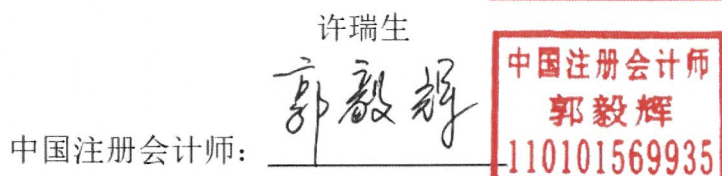 许瑞生
中国注册会计师：郭毅辉
中国注册会计师
郭毅辉
110101569935